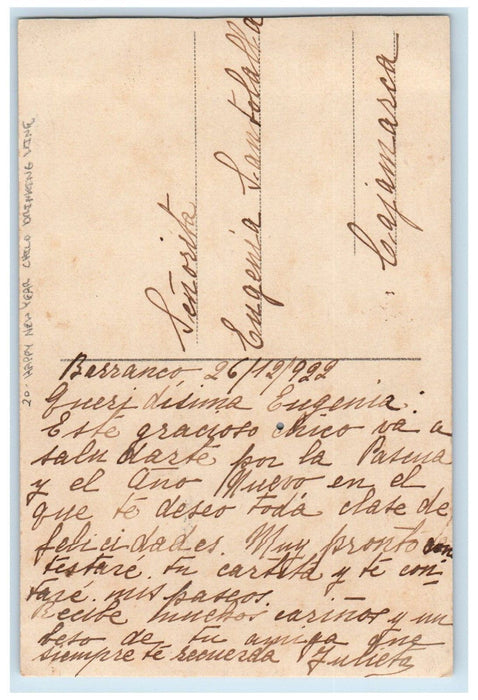 20- HAPPY NEW YEAR CHILD DRINKING WINE
Señorita
Eugenia Santolalla
Cajamarca
Barranco 26/12/922
Queridísima Eugenia:
Este gracioso chico va a
saludarte por la Pascua
y el Año Nuevo en el
que te deseo toda clase de
felicidades. Muy pronto con
testaré tu cartita y te con-
taré mis paseos.
Recibe muchos cariños y un
beso de tu amiga que
siempre te recuerda Julieta